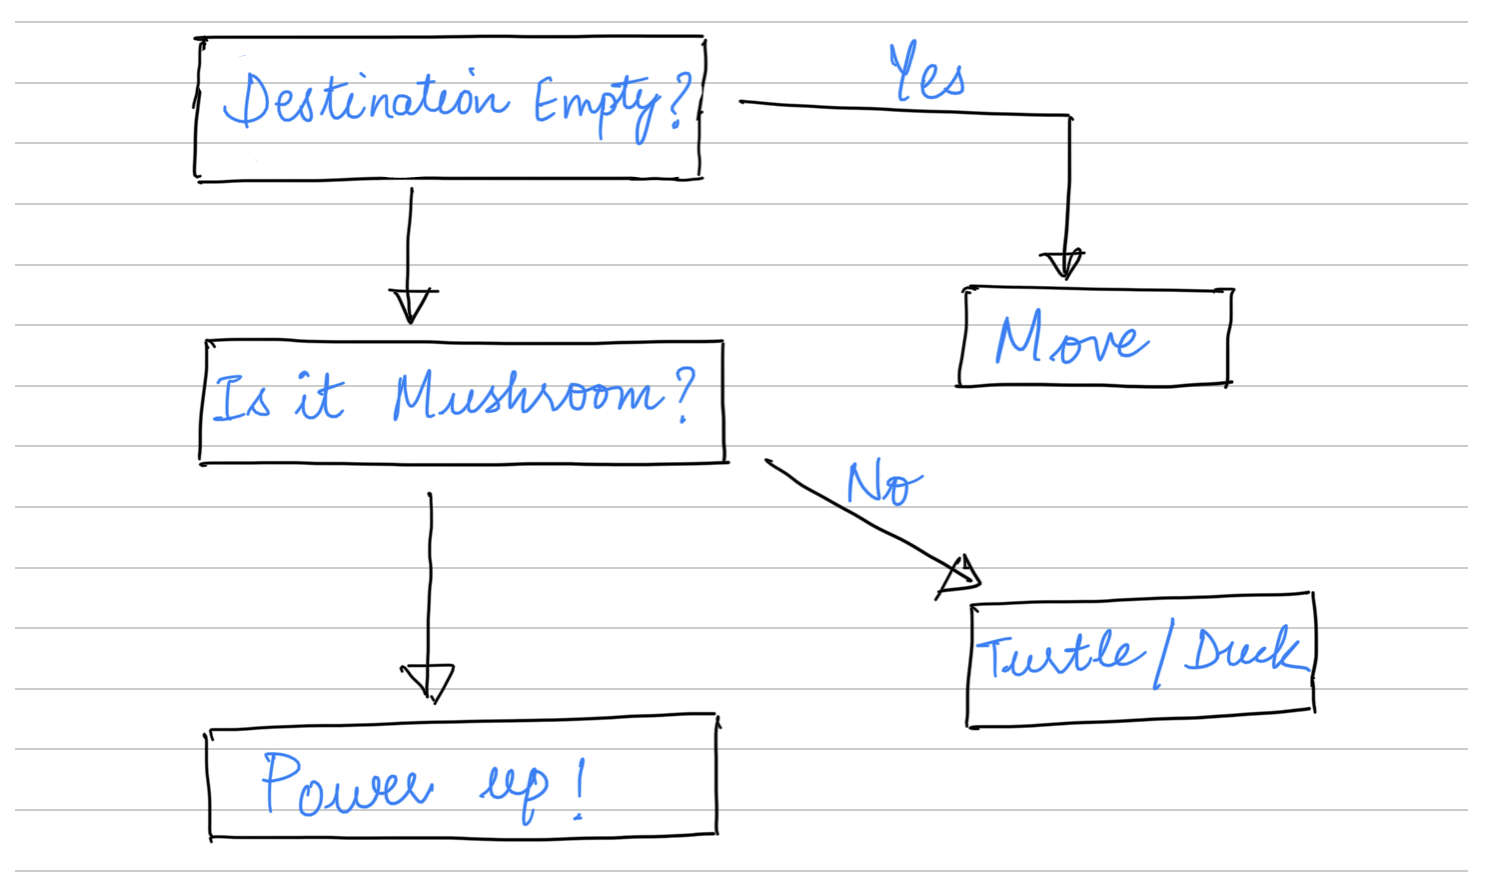 Destination Empty?
Yes
Move
Is it Mushroom?
No
Turtle/Duck
Power up!